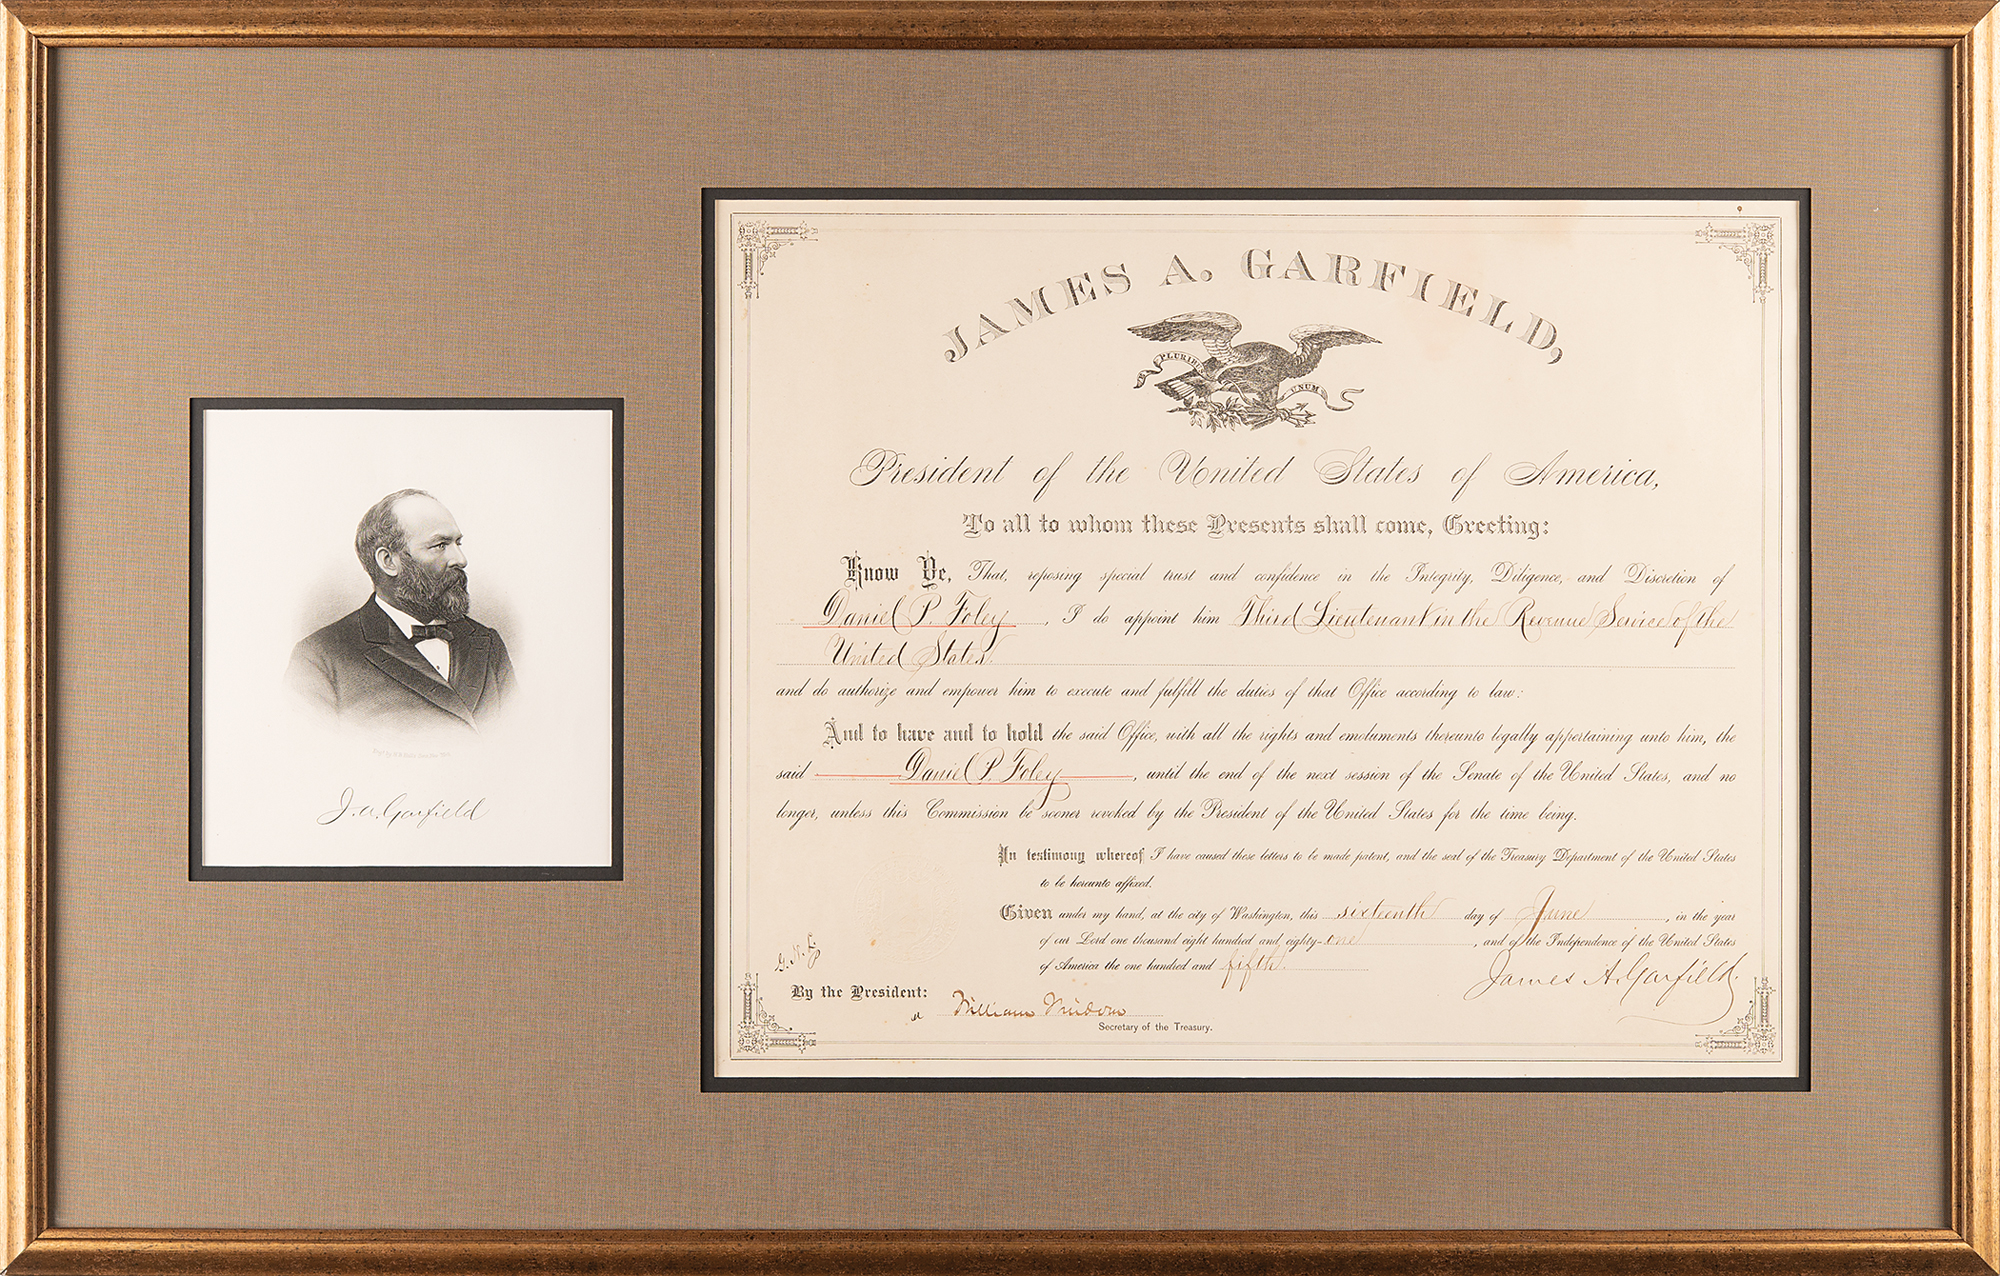 J. A. Garfield
JAMES A. GARFIELD,
E PLURIBUS UNUM
President of the United States of America,
To all to whom these Presents shall come, Greeting:
Know Ye, That, reposing special trust and confidence in the Integrity, Diligence, and Discretion of
Daniel P. Foley, I do appoint him Third Lieutenant in the Revenue Service of the
United States
and do authorize and empower him to execute and fulfill the duties of that Office according to law:
And to have and to hold the said Office, with all the rights and emoluments thereunto legally appertaining unto him, the
said Daniel P. Foley, until the end of the next session of the Senate of the United States, and no
longer, unless this Commission be sooner revoked by the President of the United States for the time being.
In testimony whereof I have caused these letters to be made patent, and the seal of the Treasury Department of the United States
to be hereunto affixed.
Given under my hand, at the city of Washington, this sixteenth day of June, in the year
of our Lord one thousand eight hundred and eighty-one, and of the Independence of the United States
of America the one hundred and fifth.
James A. Garfield.
By the President:
William Windom
Secretary of the Treasury.